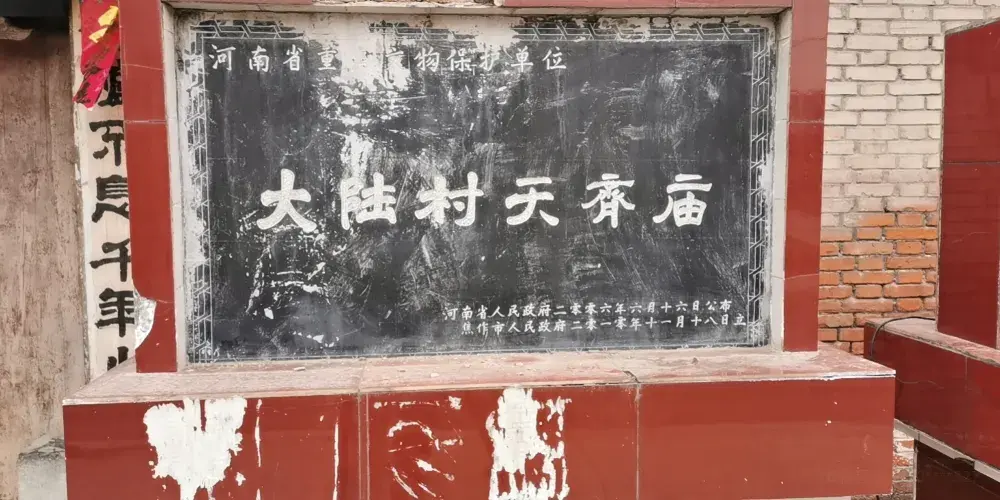 河南省重 文物保护单位
大陆村天齊庙
河南省人民政府二零零六年六月十六日公布
焦作市人民政府二零一零年十一月十八日立
不息千年